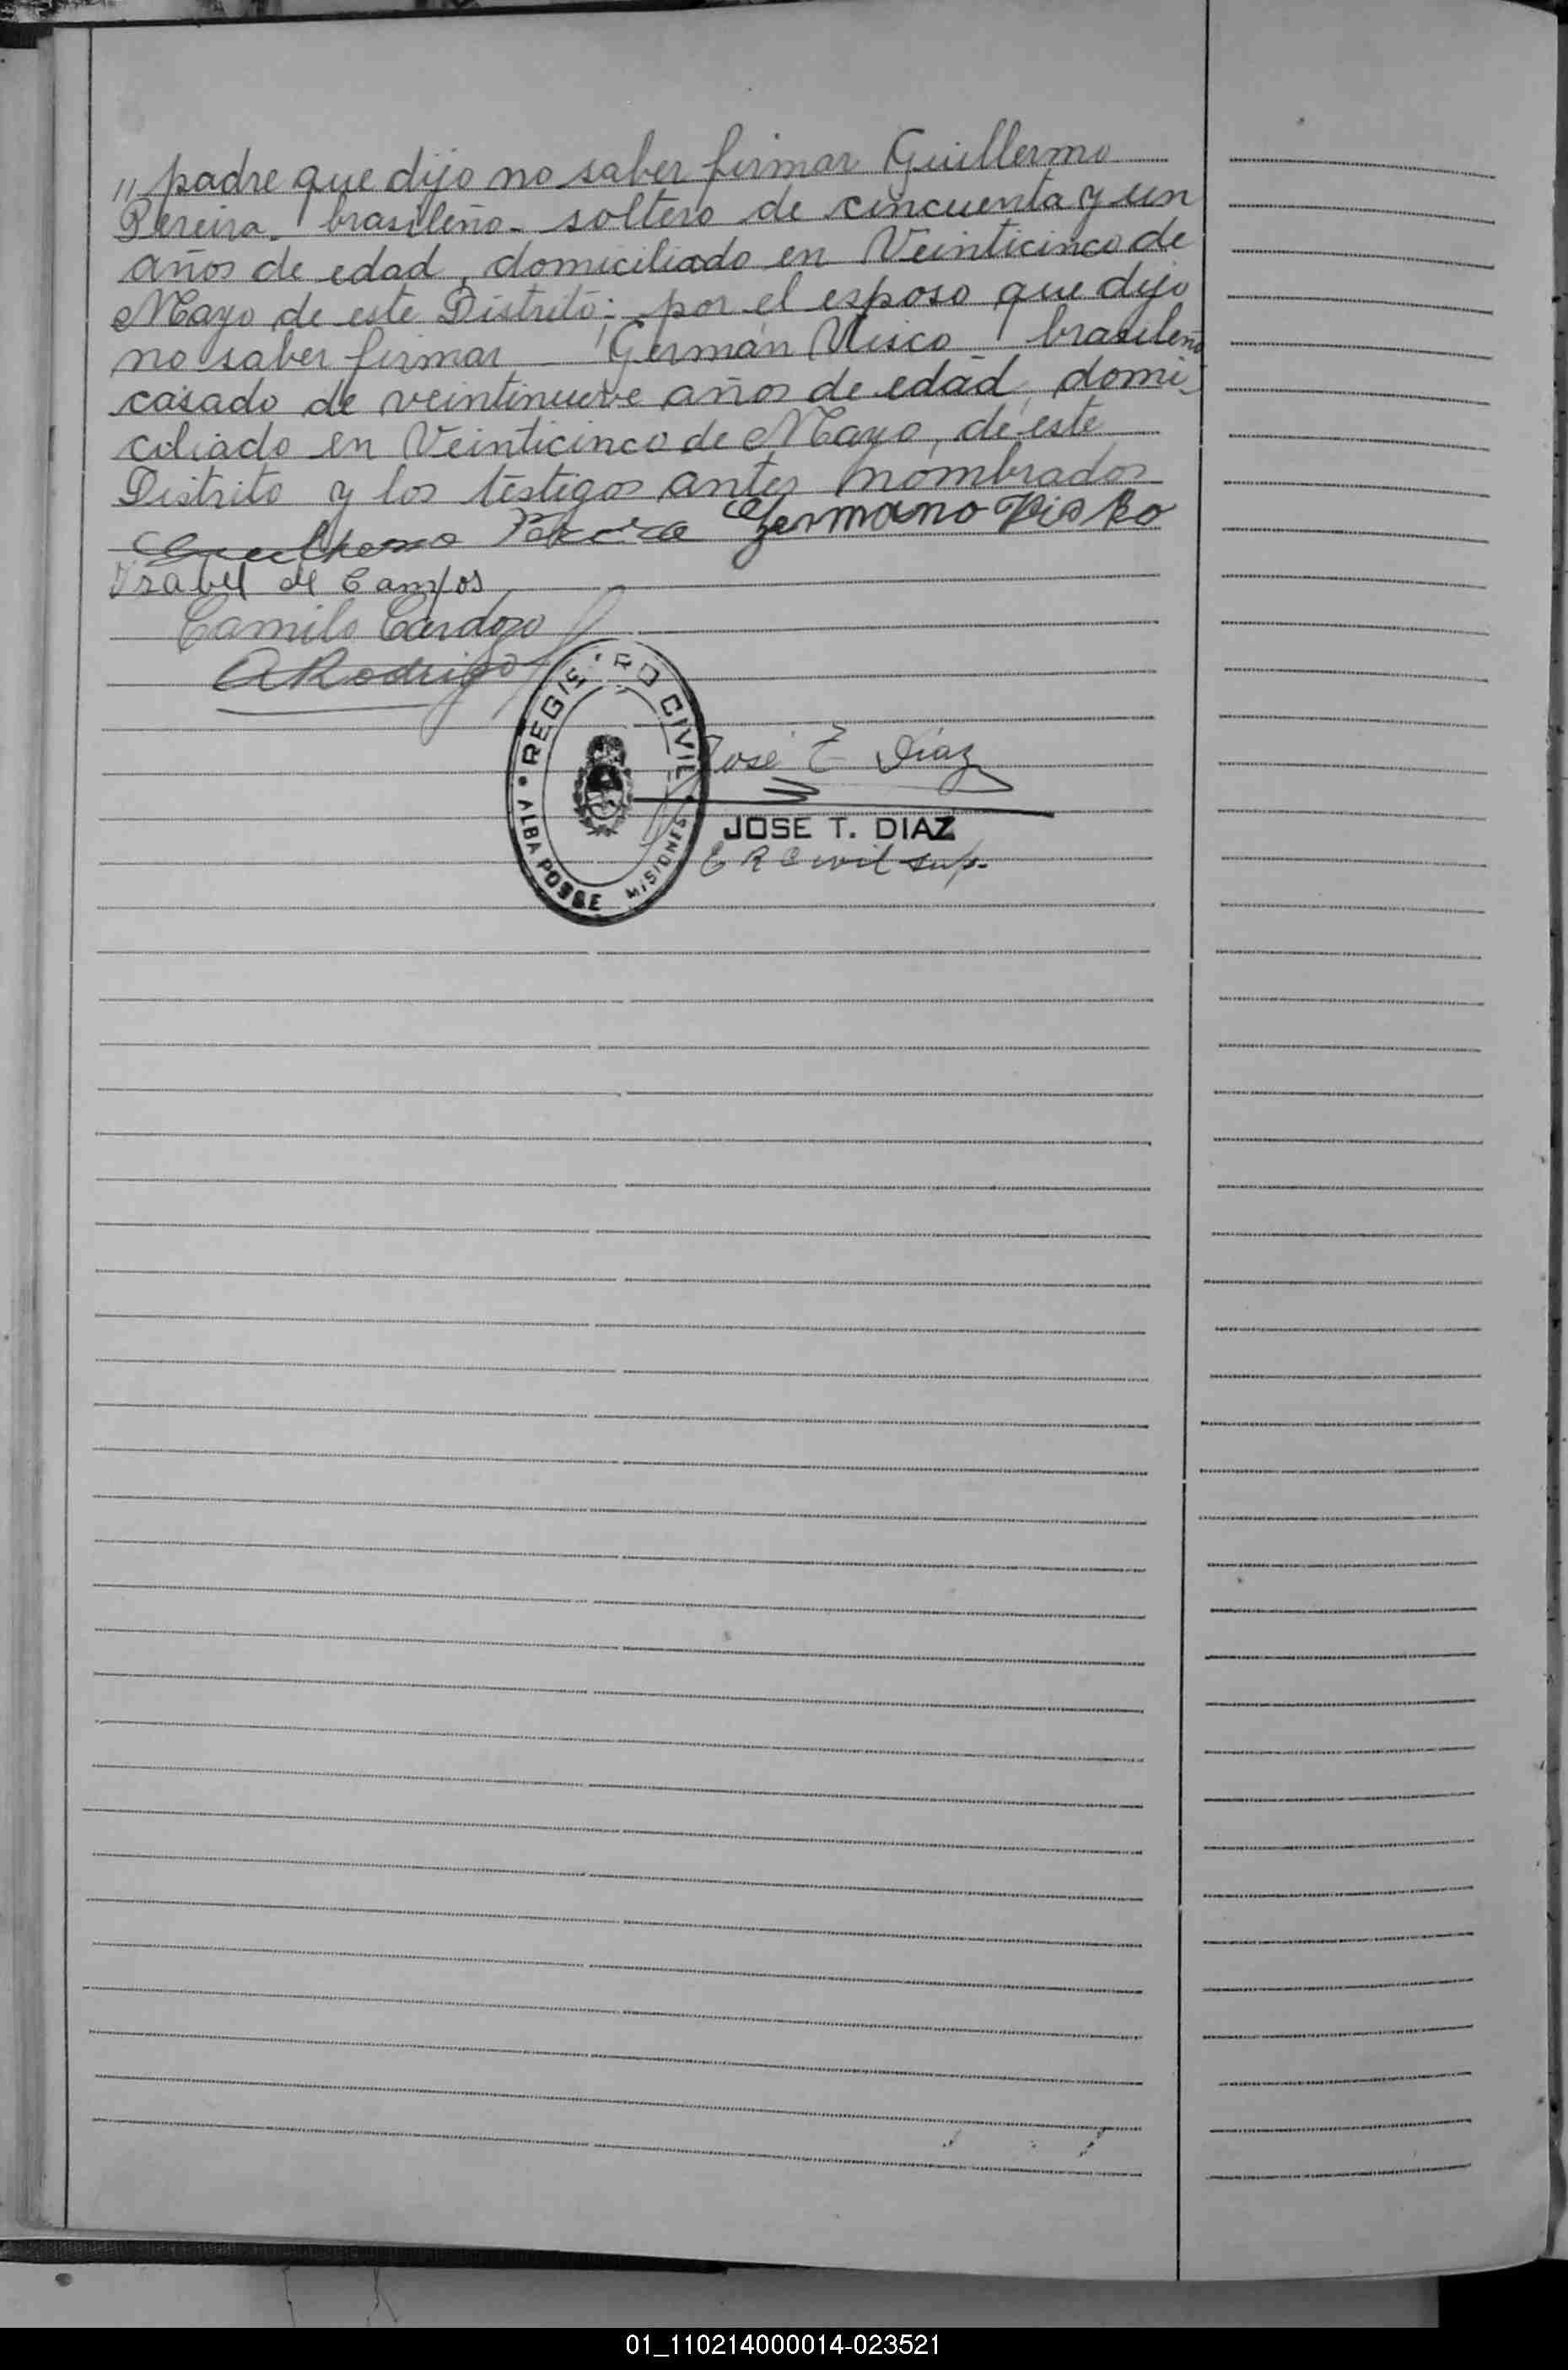 " padre que dijo no saber firmar Guillermo
Pereira - brasileño - soltero de cincuenta y un
años de edad, domiciliado en Veinticinco de
Mayo de este Distrito; por el esposo que dijo
no saber firmar Germán Visco brasileño
casado de veintinueve años de edad, domi-
ciliado en Veinticinco de Mayo, de este
Distrito y los testigos antes nombrados
Germano Visko
Isabel de Campos
Camilo Cardozo
ARodrigo
REGISTRO CIVIL
ALBA POSSE MISIONES
José T Díaz
JOSE T. DIAZ
E R Civil sup.
01_110214000014-023521